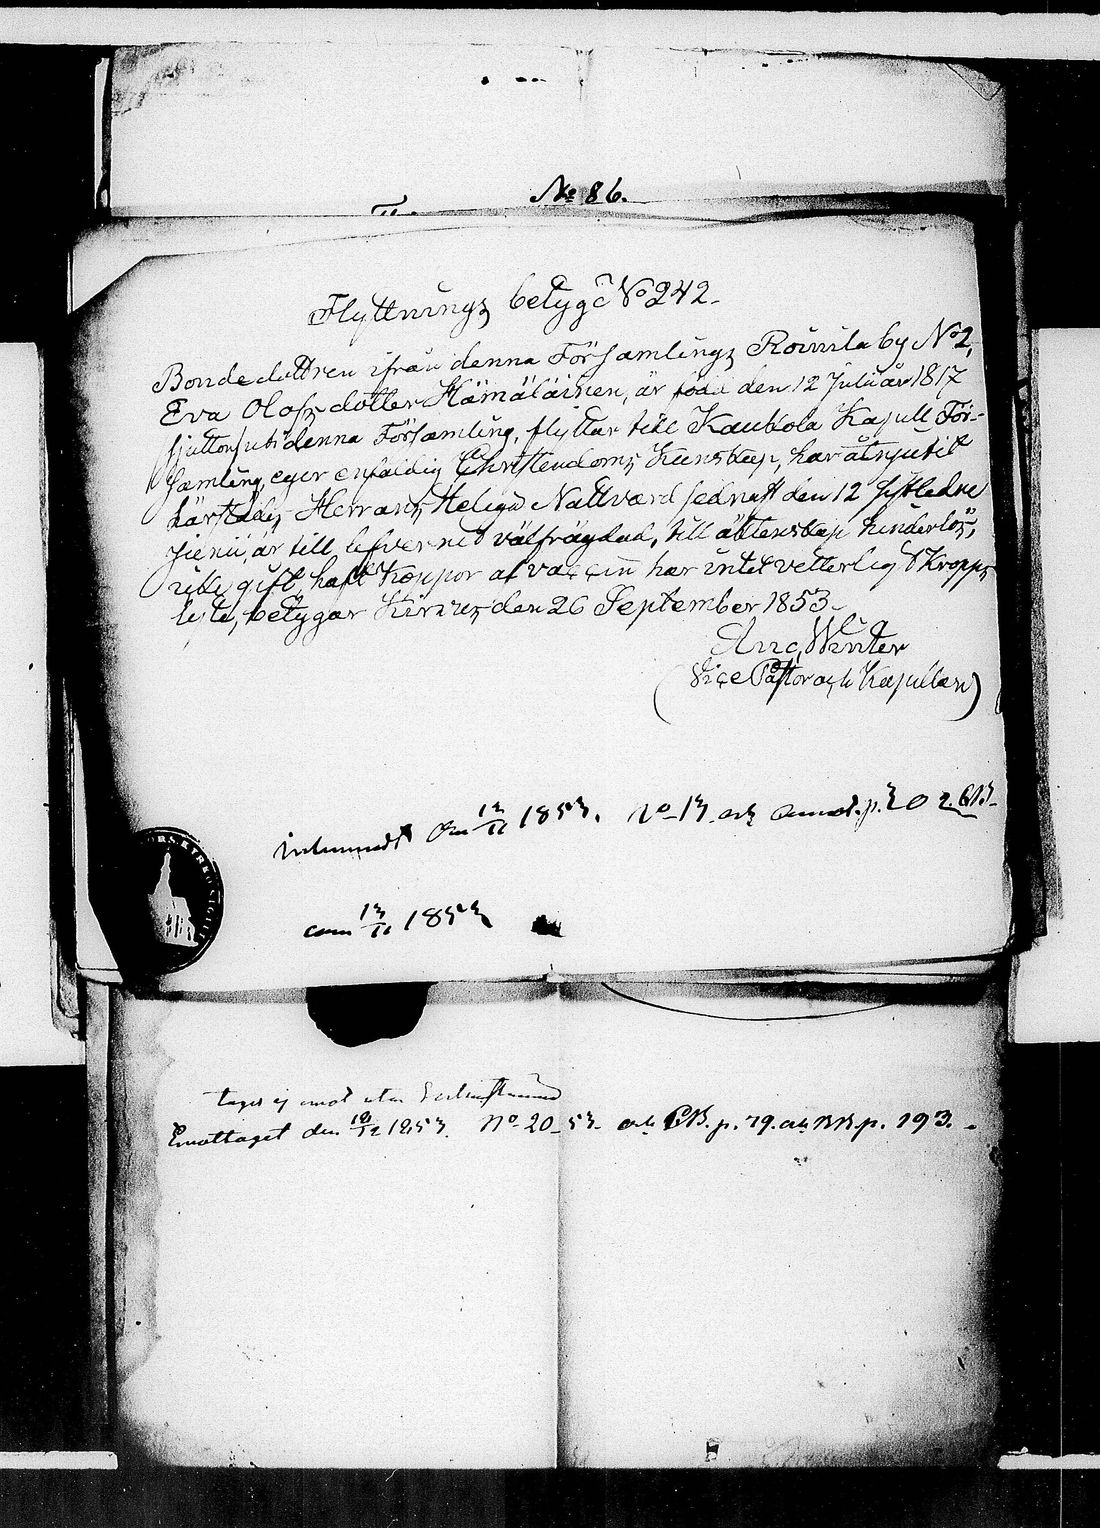 No 86.
Flyttnings betyg No 242.
Bondedottren ifrån denna Församlings Roinila by No 2,
Eva Olofsdotter Hämäläinen, är född den 12 Juli år 1817
sjutton uti denna Församling, flyttar till Kaukola Kapell För-
samling, eger enfaldig Christendoms Kunskap, har åtnjutit
härstädes Herrans Heliga Nattvard sednast den 12 sistledne
Junii, är till lefvernet välfrägdad, till äktenskap hinderlös,
icke gift, haft Koppor af vaccin har intet vetterligt Kropps
lyte, betygar Kirvus den 26 September 1853.
Winter
(Vice Pastor och Kapellan)
den 13/11 1853. No 13 och annot. p.
13/11 1853
KYRKO SIGILL
tages ej emot utan
Emottaget den 18/12 1853. No 20 53 och CB. p. 79. och p. 193.